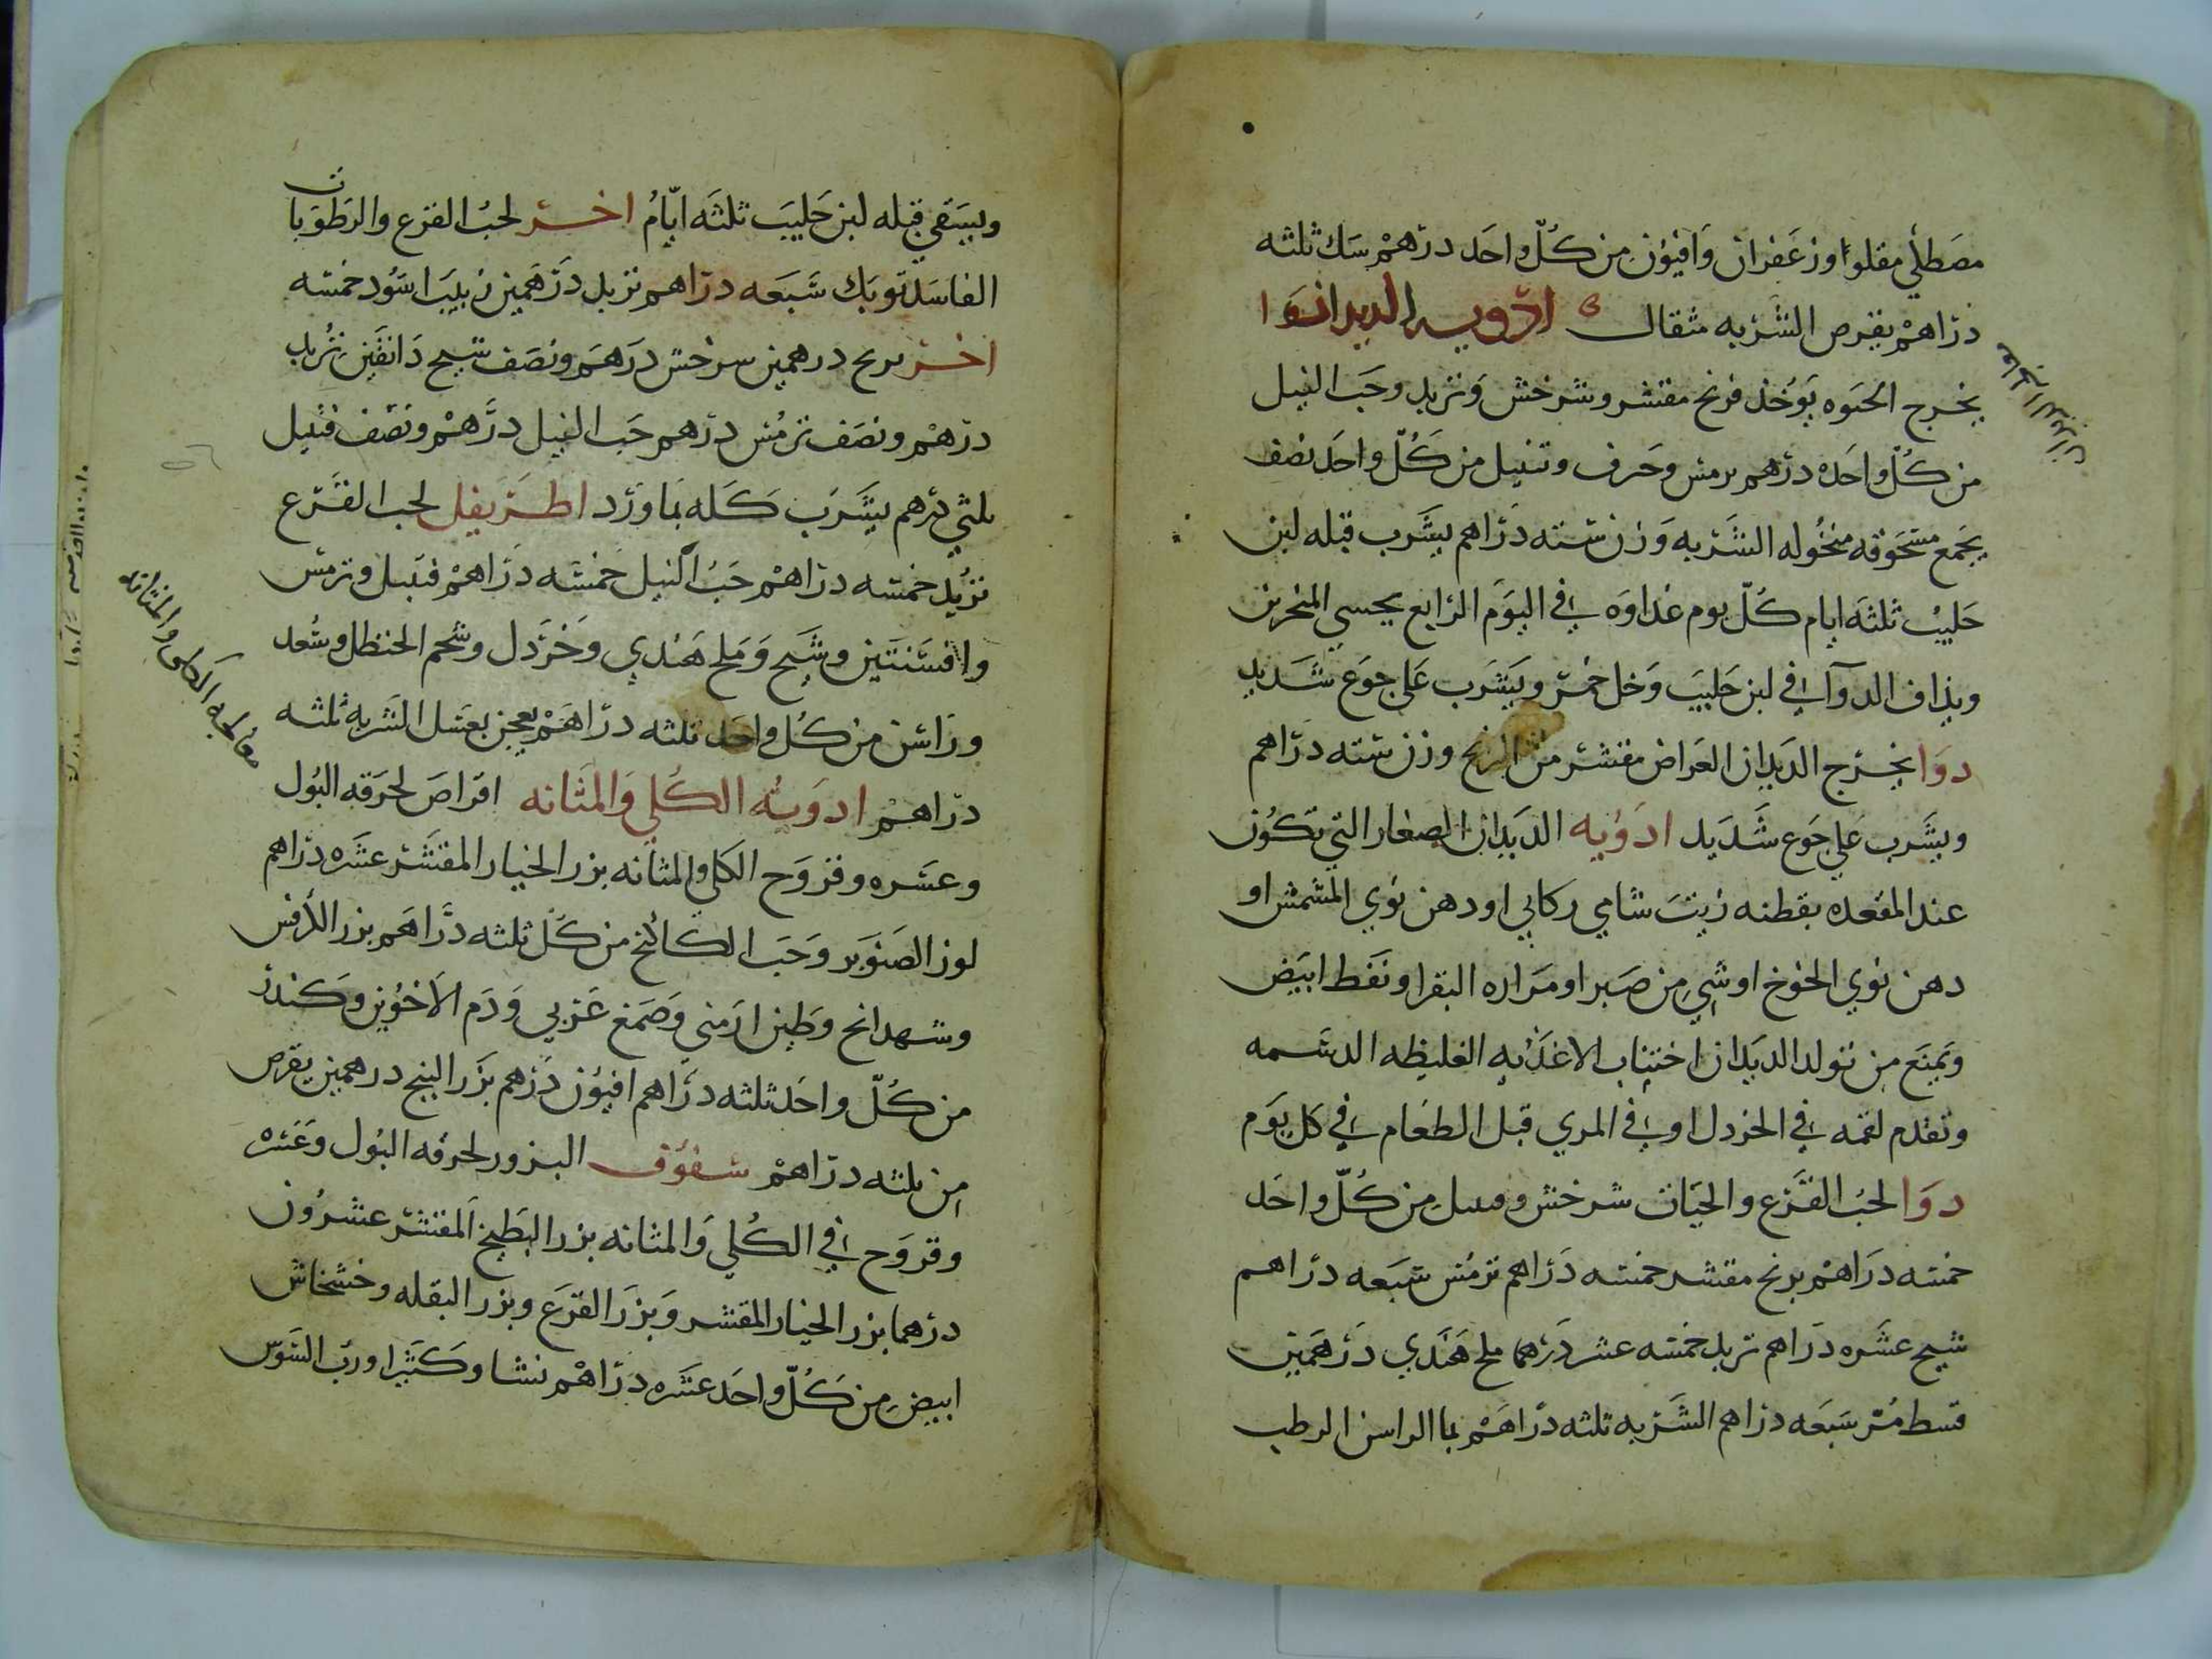 مصطكي مقلوا وزعفران وافيون من كلّ واحد درهم سك ثلثه
دراهم يقرص الشربه مثقال ادويه الديدان دوا
يخرج الحيوه يوخذ فرنج مقشر وشرخش وتربد وحب النيل
من كلّ واحده درهم ترمس وحرف وتنبيل من كلّ واحد نصف
يجمع مسحوقه منخوله الشربه وزن سته دراهم يشرب قبله لبن
حليب ثلثه ايام كلّ يوم غداوه في اليوم الرابع يحسي المنخرين
ويذاف الدوآ في لبن حليب وخل خمر ويشرب على جوع شديد
دوا يخرج الديدان العراض مقشر من البرنج وزن سته دراهم
ويشرب على جوع شديد ادويه الديدان الصغار التي تكون
عند المقعده بقطنه زيت شامي ركابي او دهن نوي المشمش او
دهن نوي الخوخ او شي من صبر او مراره البقر او نفط ابيض
ويمنع من تولد الديدان اختناب الاغذيه الغليظه الدسمه
وتقدم لقمه في الخردل او في المري قبل الطعام في كل يوم
دوا لحب القرع والحيات شرخش وقنبيل من كلّ واحد
خمسه دراهم برنج مقشر خمسه دراهم ترمس سبعه دراهم
شيح عشره دراهم تربد خمسه عشر درهما ملح هندي درهمين
قسط مر سبعه دراهم الشربه ثلثه دراهم بما الراسن الرطب
ويسقي قبله لبن حليب ثلثه ايام اخر لحب القرع والرطوبات
الفاسده توبك سبعه دراهم تربد درهمين زبيب اسود خمسه
اخر برنج درهمين سرخس درهم ونصف شيح دانقين تربد
درهم ونصف ترمس درهم حب النيل درهم ونصف قنبيل
ثلثي درهم يشرب كله بماورد اطريفل لحب القرع
تربد خمسه دراهم حب النيل خمسه دراهم قنبيل وترمس
وافسنتين وشيح وملح هندي وخردل وشحم الحنظل وسعد
وراسن من كل واحد ثلثه دراهم يعجن بعسل الشربه ثلثه
دراهم ادويه الكلي والمثانه اقراص لحرقه البول
وعسره وقروح الكلي والمثانه بزر الخيار المقشر عشره دراهم
لوز الصنوبر وحب الكاكنج من كل ثلثه دراهم بزر الكرفس
وشهدانج وطين ارمني وصمغ عربي ودم الاخوين وكندر
من كلّ واحد ثلثه دراهم افيون درهم بزر البنج درهمين يقرص
من ثلثه دراهم سفوف البزور لحرقه البول وعسره
وقروح في الكلي والمثانه بزر البطيخ المقشر عشرون
درهما بزر الخيار المقشر وبزر القرع وبزر البقله وخشخاش
ابيض من كلّ واحد عشره دراهم نشا وكثيرا ورب السوس
معالجه الكلى والمثانه